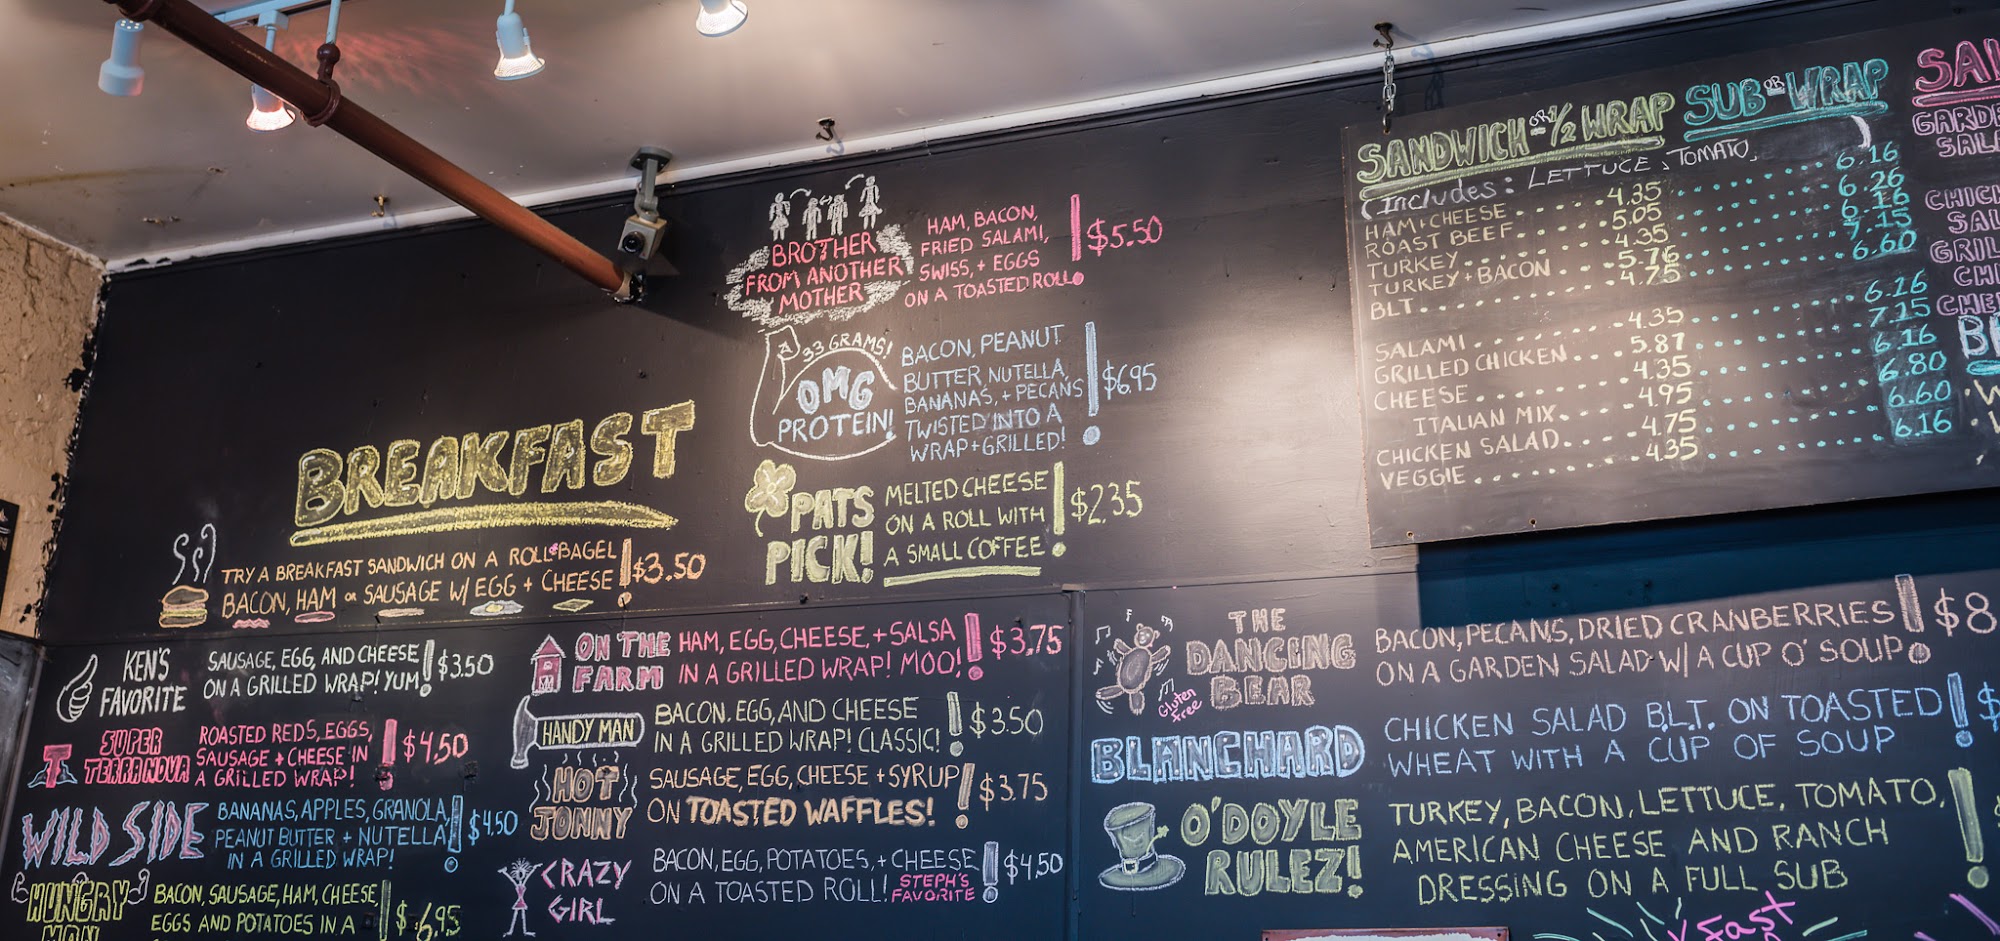 BREAKFAST
TRY A BREAKFAST SANDWICH ON A ROLL & BAGEL
BACON, HAM OR SAUSAGE W/ EGG + CHEESE! $3.50
BROTHER
FROM ANOTHER
MOTHER
HAM, BACON,
FRIED SALAMI,
SWISS, + EGGS
ON A TOASTED ROLL! $5.50
33 GRAMS!
OMG
PROTEIN!
BACON, PEANUT
BUTTER, NUTELLA,
BANANAS, + PECANS
TWISTED INTO A
WRAP + GRILLED! $6.95
PATS
PICK!
MELTED CHEESE
ON A ROLL WITH
A SMALL COFFEE! $2.35
KEN'S
FAVORITE
SAUSAGE, EGG, AND CHEESE
ON A GRILLED WRAP! YUM! $3.50
SUPER
TERRANOVA
ROASTED REDS, EGGS,
SAUSAGE + CHEESE IN
A GRILLED WRAP! $4.50
WILD SIDE
BANANAS, APPLES, GRANOLA,
PEANUT BUTTER + NUTELLA
IN A GRILLED WRAP! $4.50
HUNGRY
MAN
BACON, SAUSAGE, HAM, CHEESE,
EGGS AND POTATOES IN A $6.95
ON THE
FARM
HAM, EGG, CHEESE, + SALSA
IN A GRILLED WRAP! MOO! $3.75
HANDY MAN
BACON, EGG, AND CHEESE
IN A GRILLED WRAP! CLASSIC! $3.50
HOT
JONNY
SAUSAGE, EGG, CHEESE + SYRUP
ON TOASTED WAFFLES! $3.75
CRAZY
GIRL
BACON, EGG, POTATOES, + CHEESE
ON A TOASTED ROLL! $4.50
STEPH'S
FAVORITE
THE
DANCING
BEAR
Gluten
free
BACON, PECANS, DRIED CRANBERRIES
ON A GARDEN SALAD W/ A CUP O' SOUP! $8
BLANCHARD
CHICKEN SALAD B.L.T. ON TOASTED
WHEAT WITH A CUP OF SOUP! $
O'DOYLE
RULEZ!
TURKEY, BACON, LETTUCE, TOMATO,
AMERICAN CHEESE AND RANCH
DRESSING ON A FULL SUB!
Fast
SANDWICH OR 1/2 WRAP SUB OR WRAP
(Includes: LETTUCE, TOMATO,)
HAM + CHEESE 4.35 6.16
ROAST BEEF 5.05 6.26
TURKEY 4.35 6.16
TURKEY + BACON 5.76 7.15
BLT 4.75 6.60
SALAMI 4.35 6.16
GRILLED CHICKEN 5.87 7.15
CHEESE 4.35 6.16
ITALIAN MIX 4.95 6.80
CHICKEN SALAD 4.75 6.60
VEGGIE 4.35 6.16